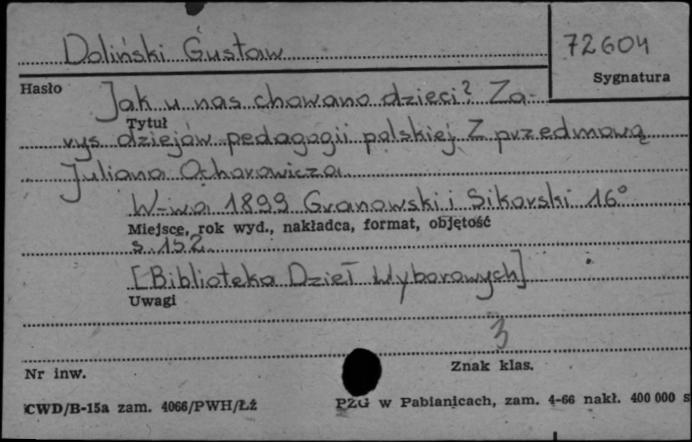 Doliński Gustaw
72604
Sygnatura
Hasło
Jak u nas chowano dzieci? Za-
Tytuł
rys dziejów pedagogii polskiej. Z przedmową
Juliana Ochorowicza
W-wa 1899 Granowski i Sikorski 16°
Miejsce, rok wyd., nakładca, format, objętość
s. 152
[Biblioteka Dzieł Wyborowych]
Uwagi
3
Znak klas.
Nr inw.
CWD/B-15a zam. 4066/PWH/Łż
PZG w Pabianicach, zam. 4-66 nakł. 400 000 s